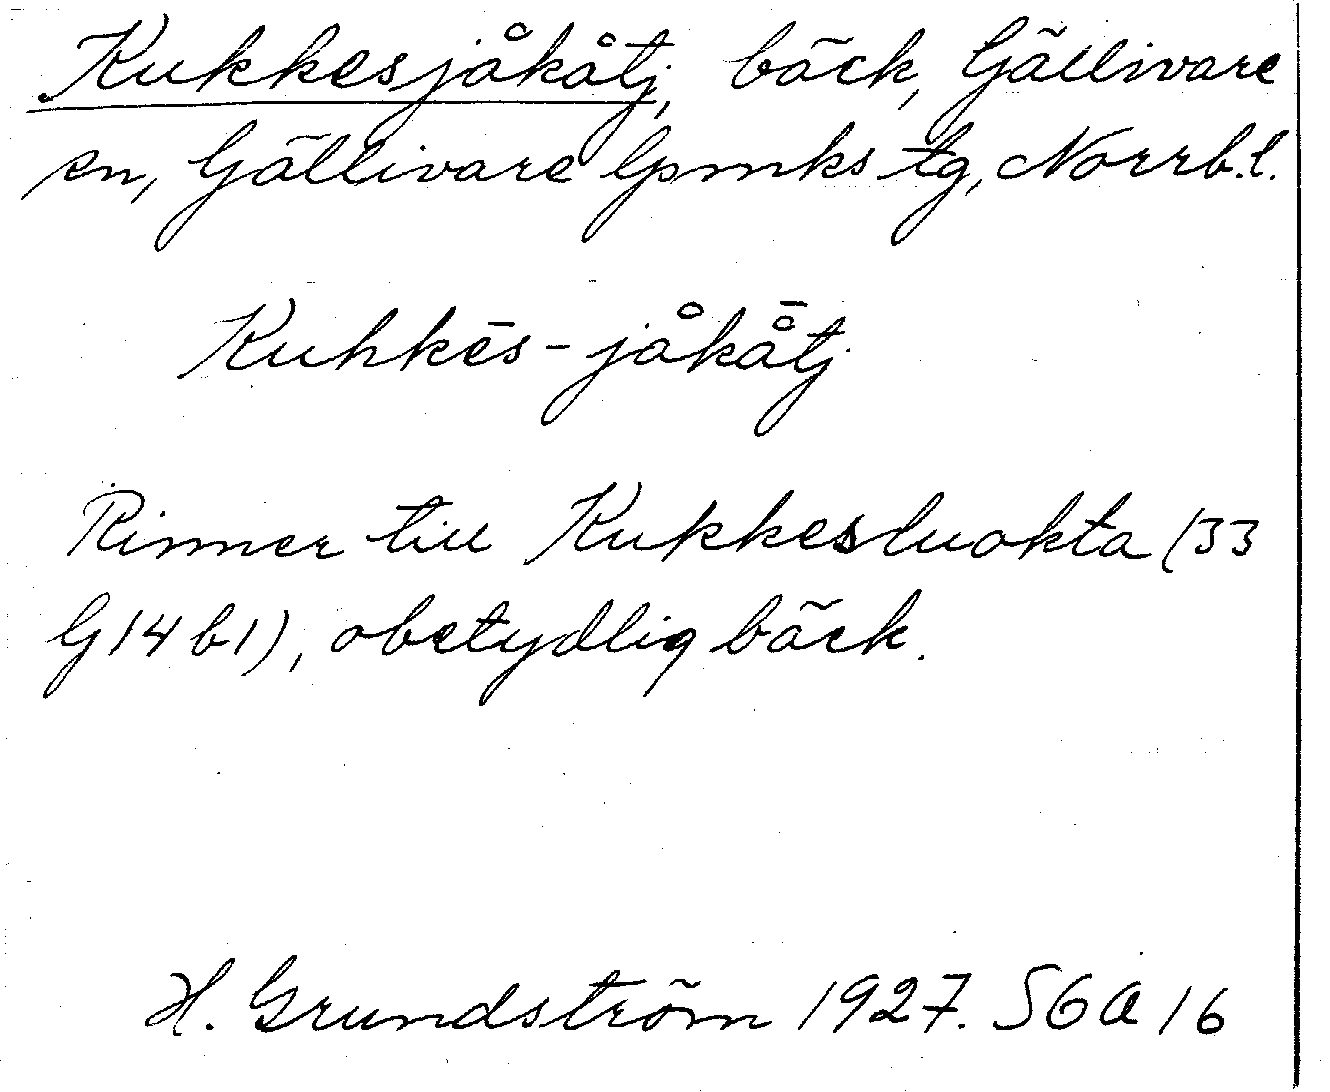 Kukkesjåkåtj, bäck, Gällivare
sn, Gällivare lpmks tg, Norrb.l.
Kuhkēs-jåkå̄tj
Rinner till Kukkesluokta (33
G14b1), obetydlig bäck.
H. Grundström 1927. SGA 16